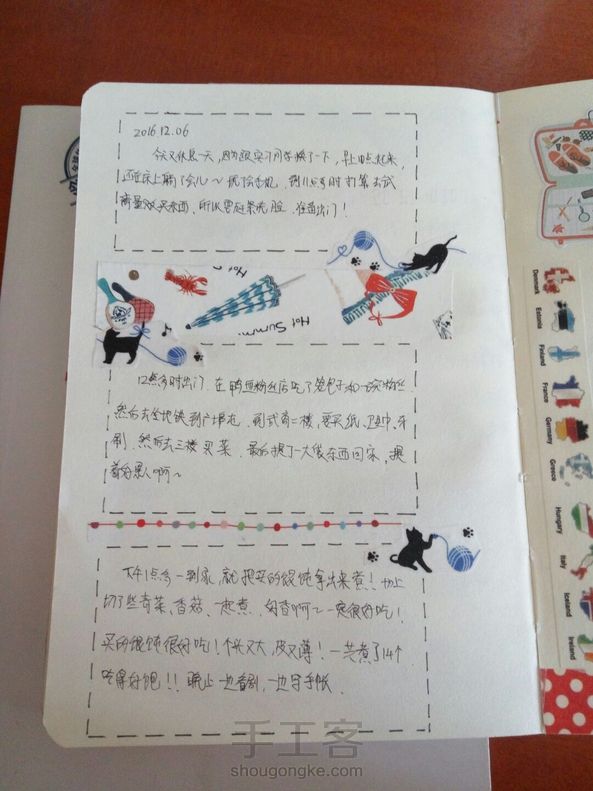 2016.12.06
今天又休息一天,因为跟实习同学换了一下,早上10点起来,
还在床上躺了会儿~玩了会手机,到11点多时打算去试
商量双买东西、所以要起来洗脸.准备出门!
Hot
Hot Summ
12点多时出门.在鸭血粉丝店吃了笼包子和一碗粉丝
然后去坐地铁到广埠屯.到武商二楼,要买纸、卫生巾、牙
刷.然后去三楼买菜.最后提了一大袋东西回家,提
着好累人啊~
下午1点多一到家,就把买的馄饨拿出来煮!加上
切了些青菜、香菇、一起煮.闻香啊~一定很好吃!
买的馄饨很好吃!个头又大,皮又薄!一共煮了14个
吃得好饱!!晚上一边看剧,一边写手帐.
Denmark
Estonia
Finland
France
Germany
Greece
Hungary
Italy
Iceland
Ireland
手工客
shougongke.com